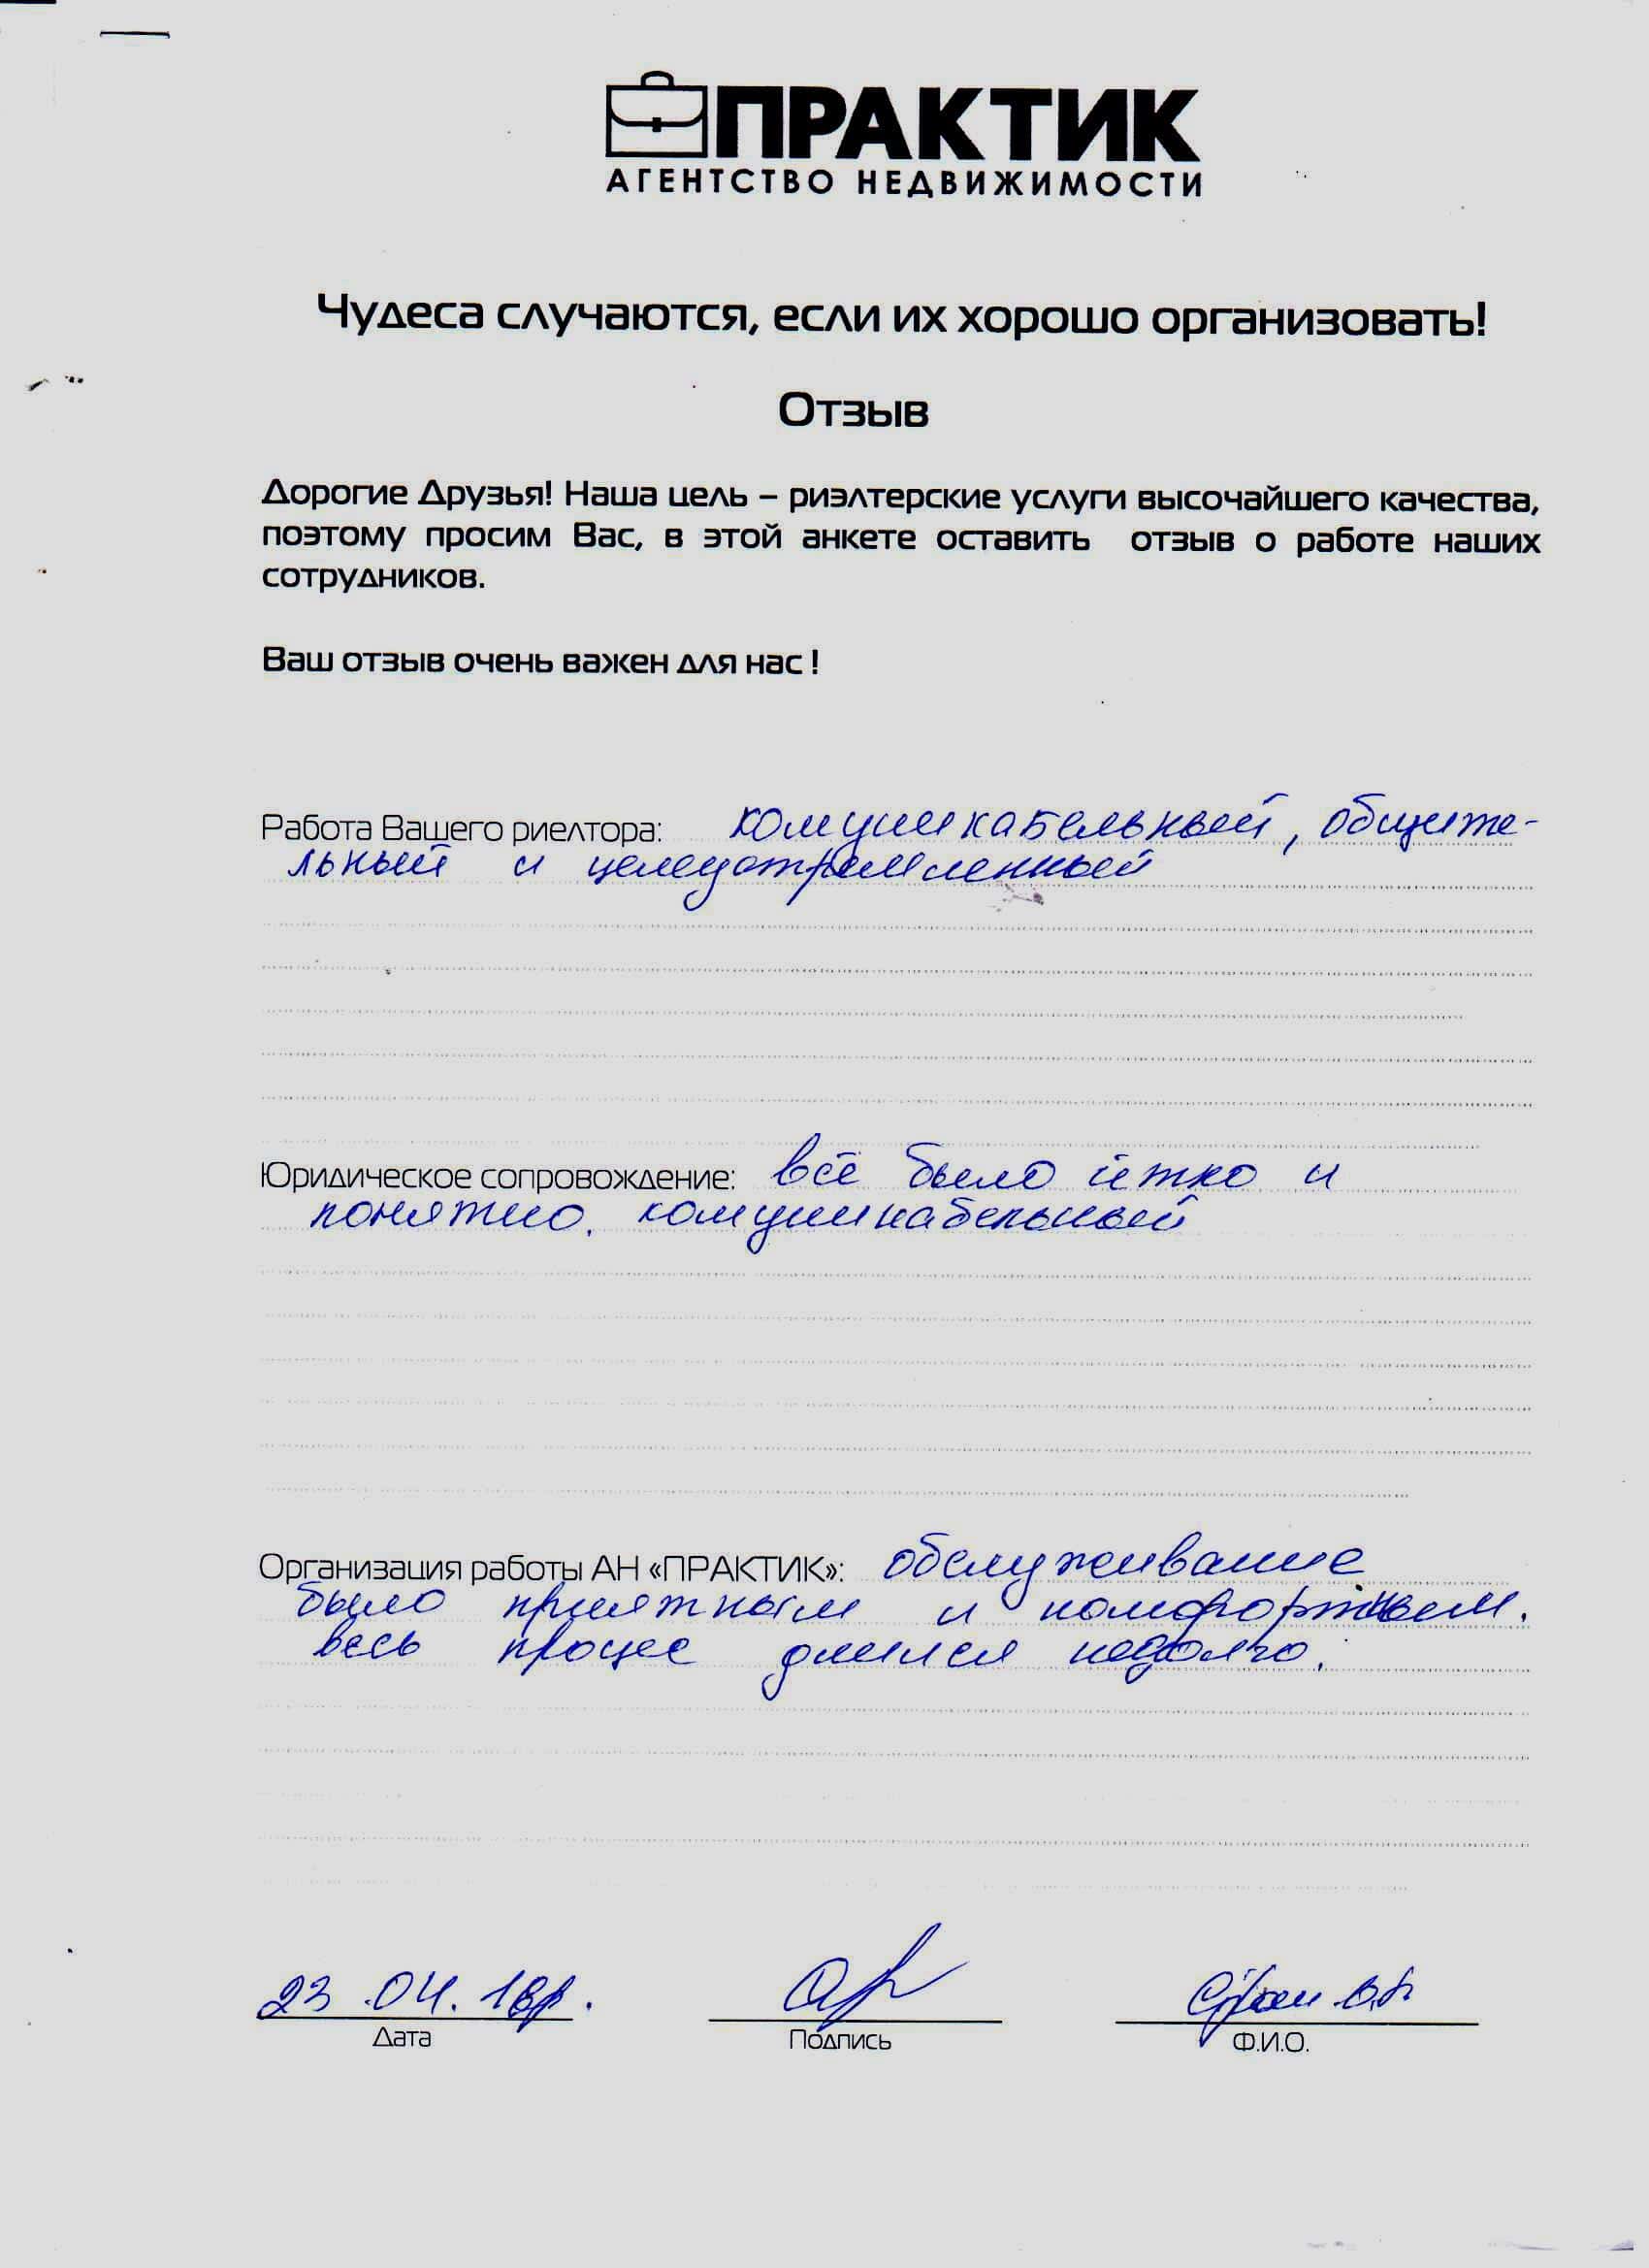 ПРАКТИК
АГЕНТСТВО НЕДВИЖИМОСТИ
Чудеса случаются, если их хорошо организовать!
Отзыв
Дорогие Друзья! Наша цель – риэлтерские услуги высочайшего качества,
поэтому просим Вас, в этой анкете оставить отзыв о работе наших
сотрудников.
Ваш отзыв очень важен для нас !
Работа Вашего риелтора: комуникабельный, общите-
льный и целеустремленный
Юридическое сопровождение: всё было чётко и
понятно. комуникабельный
Организация работы АН «ПРАКТИК»: обслуживание
было приятным и комфортным.
весь процес длился недолго.
23.04.18г.
Дата Подпись Ф.И.О.